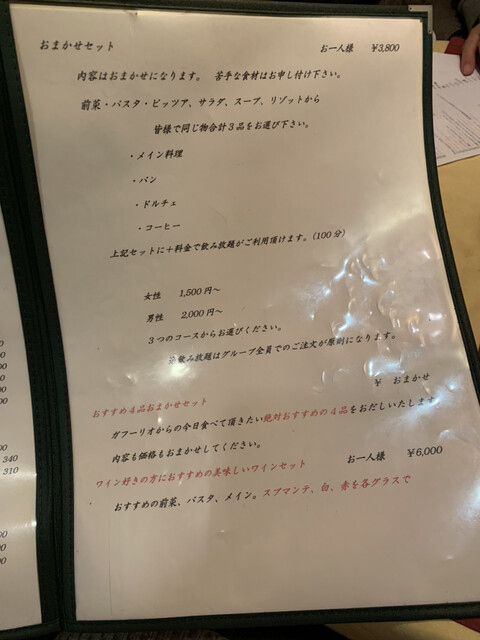 おまかせセット お一人様 ￥3,800
内容はおまかせになります。 苦手な食材はお申し付け下さい。
前菜・パスタ・ピッツア、サラダ、スープ、リゾットから
皆様で同じ物合計３品をお選び下さい。
・メイン料理
・パン
・ドルチェ
・コーヒー
上記セットに＋料金で飲み放題がご利用頂けます。(100分)
女性 1,500円～
男性 2,000円～
３つのコースからお選びください。
飲み放題はグループ全員でのご注文が原則になります。
￥ おまかせ
おすすめ４品おまかせセット
ガフーリオからの今日食べて頂きたい絶対おすすめの４品をおだしいたします
内容も価格もおまかせしてください。
ワイン好きの方におすすめの美味しいワインセット お一人様 ￥6,000
おすすめの前菜、パスタ、メイン。スプマンテ、白、赤を各グラスで
340
310